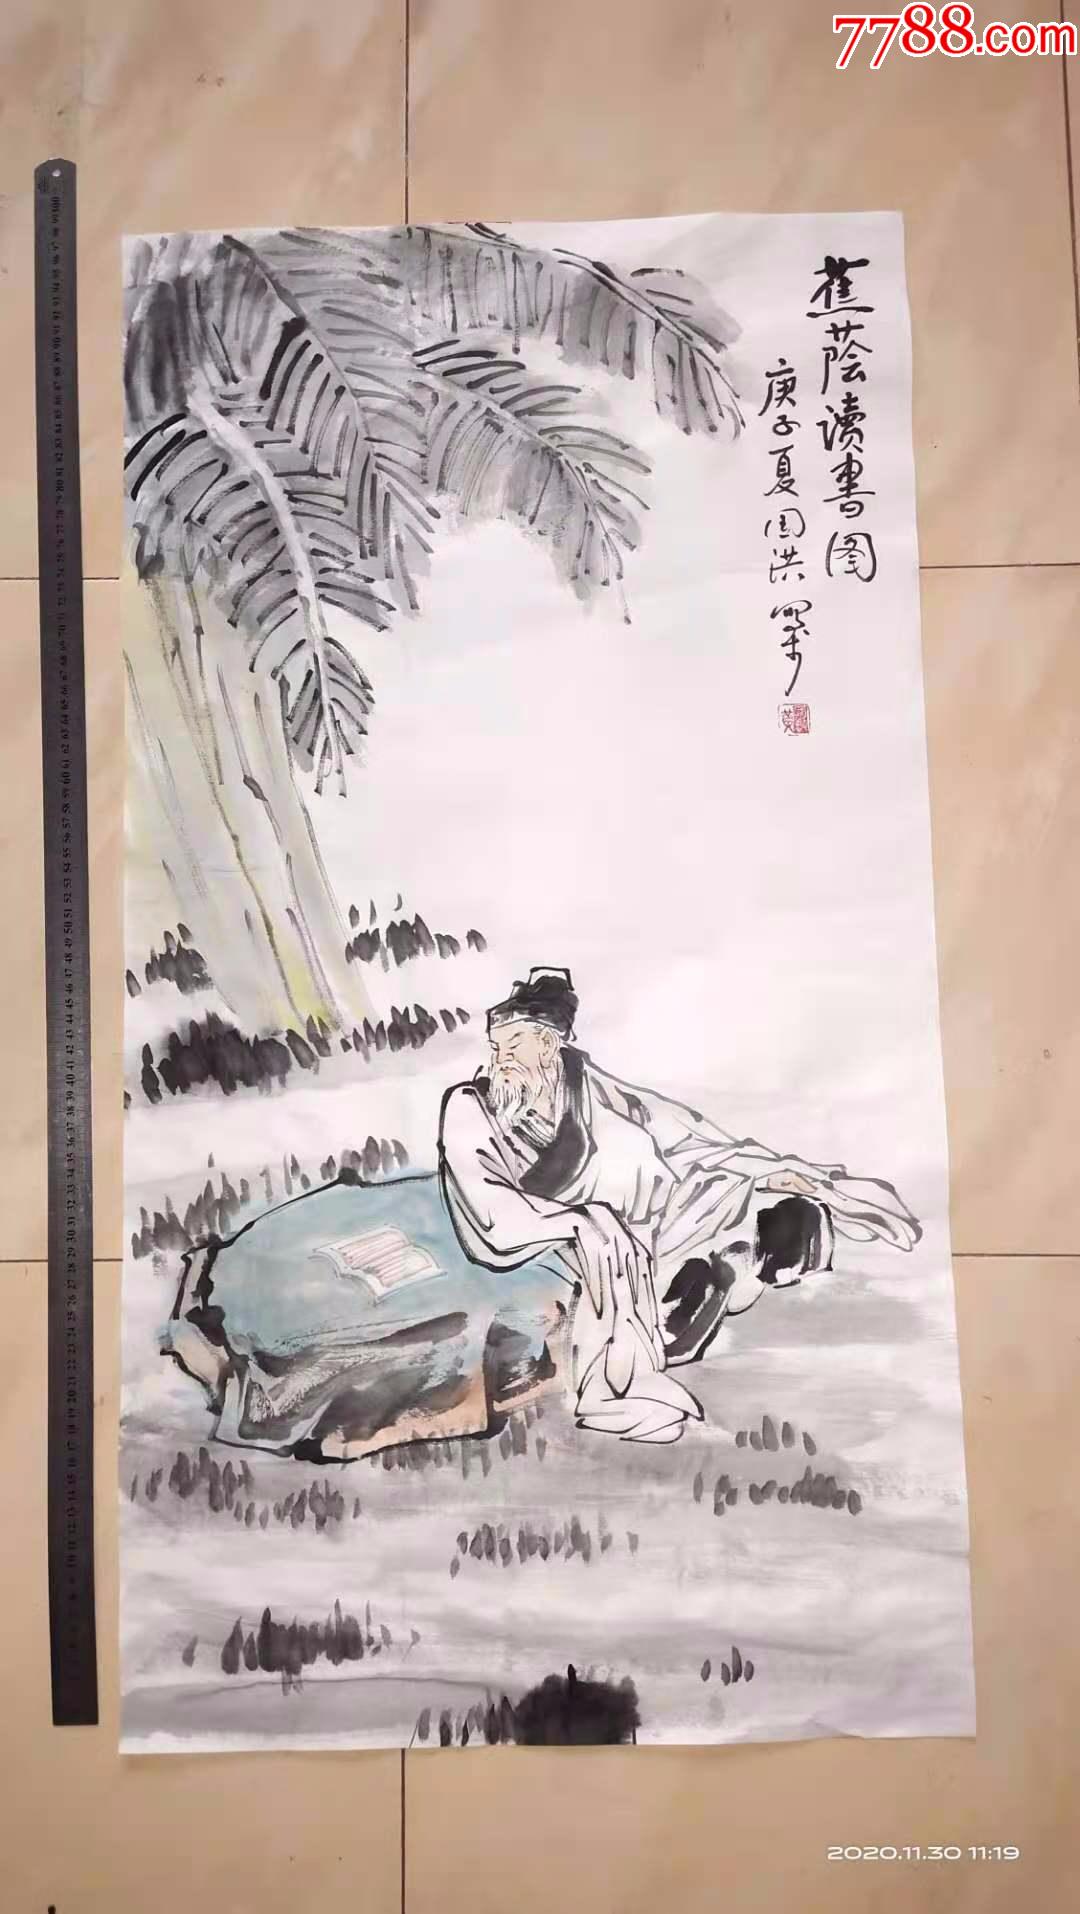 7788.com
蕉蔭读書图
庚子夏国洪写
2020.11.30 11:19